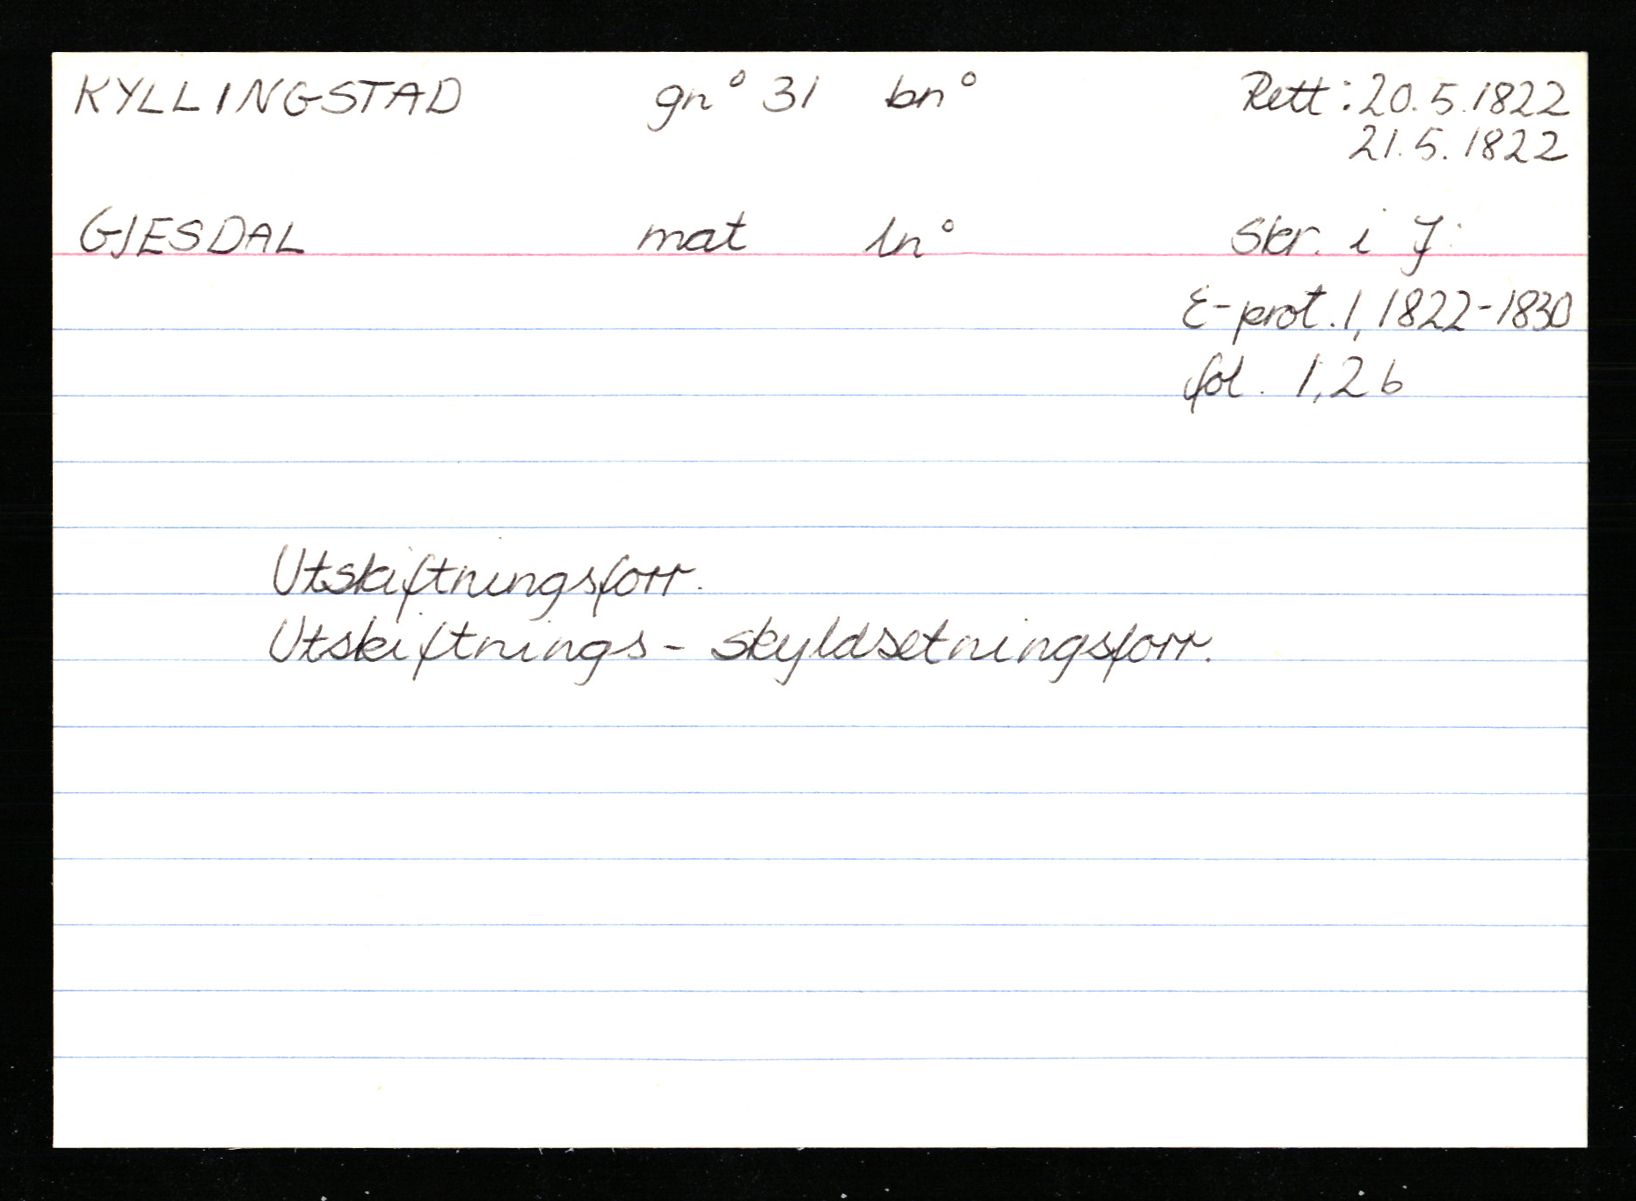 KYLLINGSTAD gn° 31 bn° Rett: 20.5.1822
21.5.1822
GJESDAL mat ln° Skr. i J:
E-prot. 1, 1822-1830
fol. 1, 2b
Utskiftningsforr.
Utskiftnings- skyldsetningsforr.